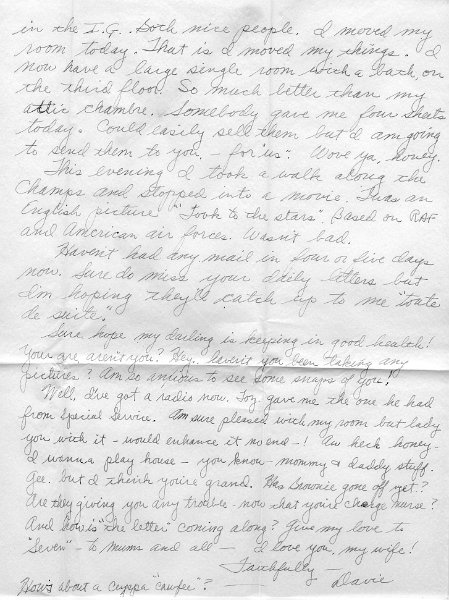 in the I.G.. Such nice people. I moved my
room today. That is I moved my things. I
now have a large single room with a bath, on
the third floor. So much better than my
attic chambre. Somebody gave me four sheets
today. Could easily sell them but I am going
to send them to you, - for "us". Wove ya, honey.
This evening I took a walk along the
Champs and stopped into a movie. Twas an
English picture "Took to the stars". Based on RAF
and American air forces. Wasn't bad.
Haven't had any mail in four or five days
now. Sure do miss your daily letters but
I'm hoping they'll catch up to me "toute
de suite".
Sure hope my darling is keeping in good health!
You are aren't you? Hey, haven't you been taking any
pictures? Am so anxious to see some snaps of you!
Well, I've got a radio now. gave me the one he had
from Special Service. Am sure pleased with my room but lady
you with it - would enhance it no end -! Aw heck honey
I wanna play house - you know - mommy & daddy stuff.
Gee. but I think you're grand. Has Brownie gone off yet?
Are they giving you any trouble - now that you're charge nurse?
And how is "the letter" coming along? Give my love to
"Seven" - to mums and all - I love you, my wife!
Faithfully -
How's about a cuppa "cawfee"? - Davie